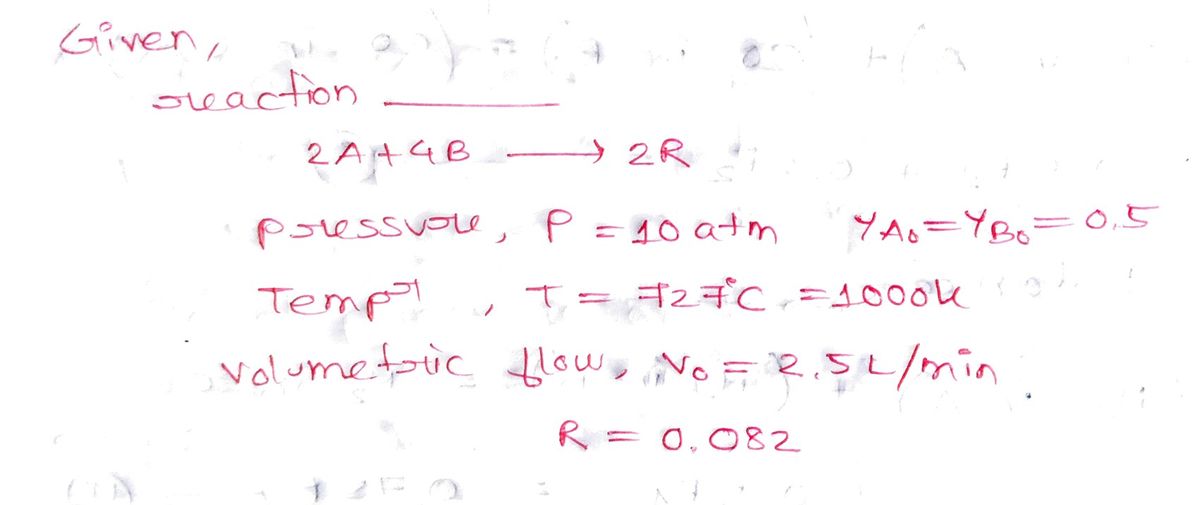 Given,
reaction
2A + 4B ⟶ 2R
pressure, P = 10 atm Y_A₀ = Y_B₀ = 0.5
Temp^r, T = 727°C = 1000K
volumetric flow, V₀ = 2.5 L/min
R = 0.082